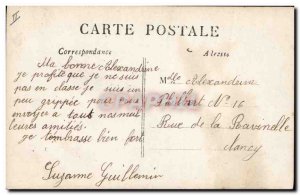 II
CARTE POSTALE
Correspondance
Adresse
Ma bonne Alexandrine
je profite que je ne suis
pas en classe je suis un
peu grippée pour
envoyer à tous nos meil
leures amitiés.
je t'embrasse bien fort
Suzanne Guillemin
Mlle Alexandrine
Part No 16
Rue de la Ravinelle
Nancy